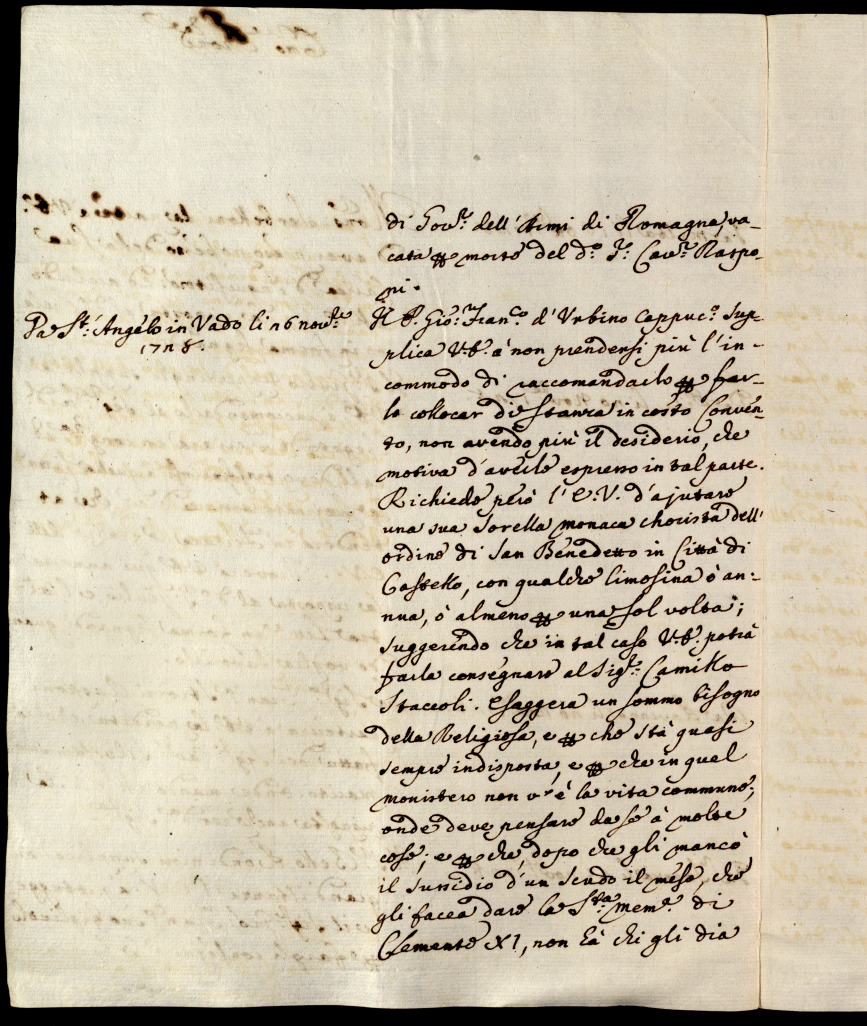 di Gov.re dell'Armi di Romagna, va-
cata per morte del d.o S.r Cav.re Raspo-
ni.
Da S.t Angelo in Vado li 26 nov.bre
1728.
Il P. Gio: Fran.co d'Urbino Cappuc.o sup-
plica V.E. à non prendersi più l'in-
commodo di raccomandarlo per far-
lo collocar di stanza in cotesto Conven-
to, non avendo più il desiderio, che
motiva d'averle espresso in tal parte.
Richiede però l'E.V. d'ajutare
una sua Sorella monaca chorista dell'
ordine di San Benedetto in Città di
Castello, con qualche limosina ò an-
nua, ò almeno per una sol volta;
suggerendo che in tal caso V.E. potrà
farla consegnare al Sig.re Camillo
Staccoli. Esaggera un sommo bisogno
della Religiosa, e per che stà quasi
sempre indisposta, e per che in quel
monistero non v'è la vita commune;
onde deve pensare da se à molte
cose; e per che, dopo che gli mancò
il sussidio d'un scudo il mese, che
gli facea dare la S.ta mem.a di
Clemente XI, non hà chi gli dia